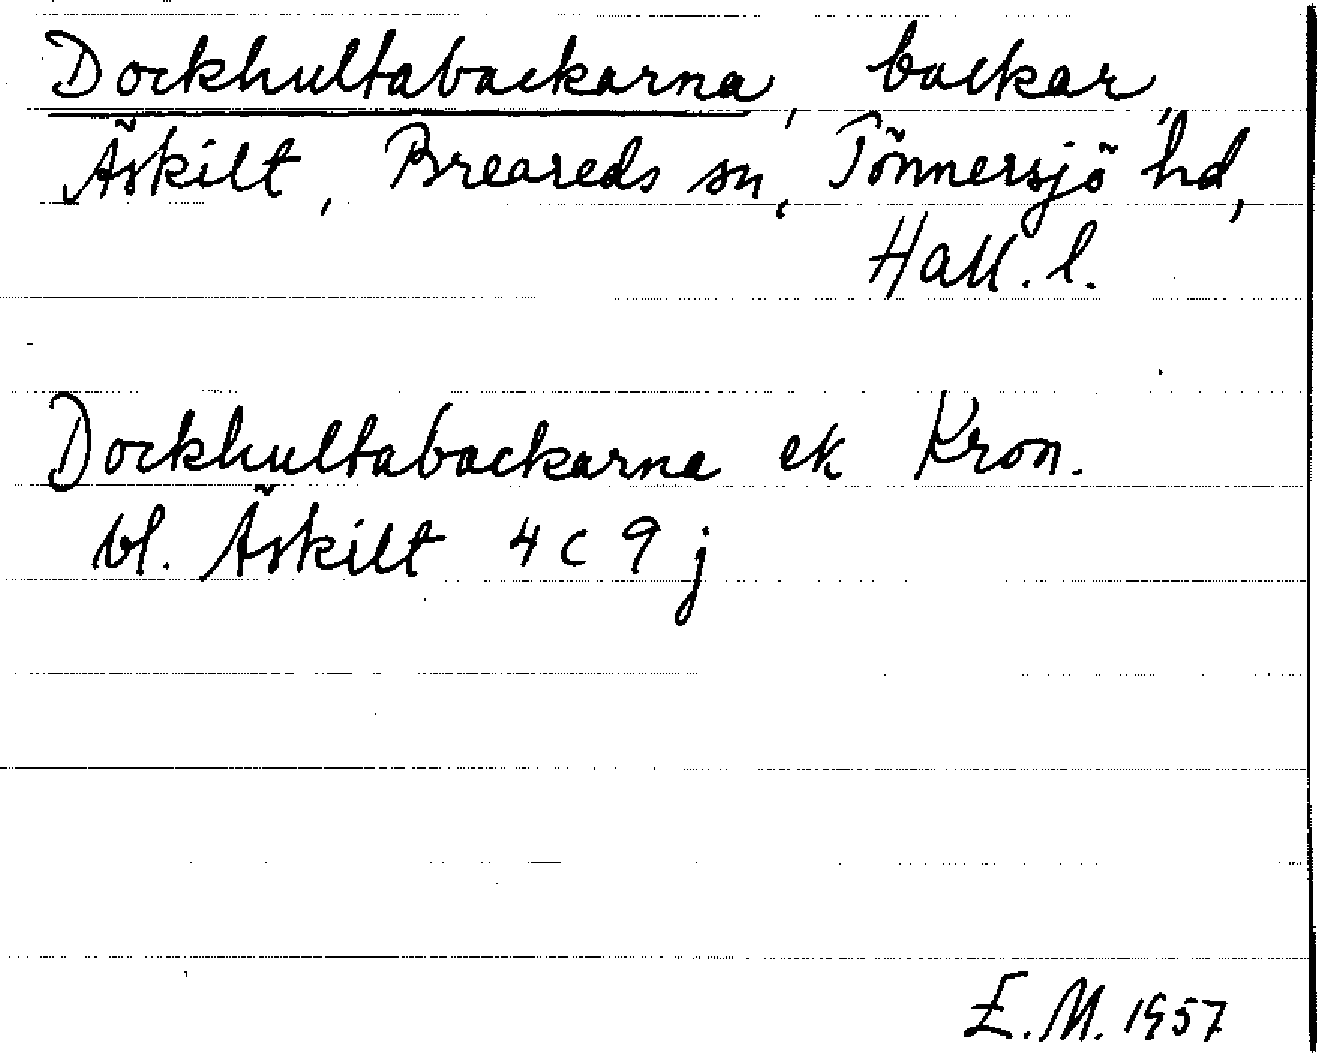 Dockhultabackarna, backar,
Äskilt, Breareds sn, Tönnersjö hd,
Hall. l.
Dockhultabackarna ek Kron.
bl. Äskilt 4 C 9 j
E. M. 1957